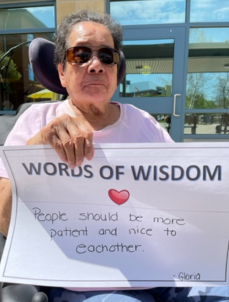 WORDS OF WISDOM
People should be more
patient and nice to
eachother.
- Gloria